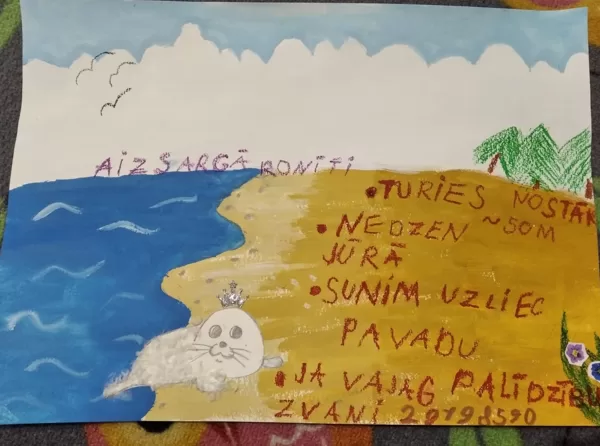 AIZSARGĀ RONĪTI
• TURIES NOSTĀK
• NEDZEN ~50M
JŪRĀ
• SUNIM UZLIEC
PAVADU
• JA VAJAG PALĪDZĪBU
ZVANI